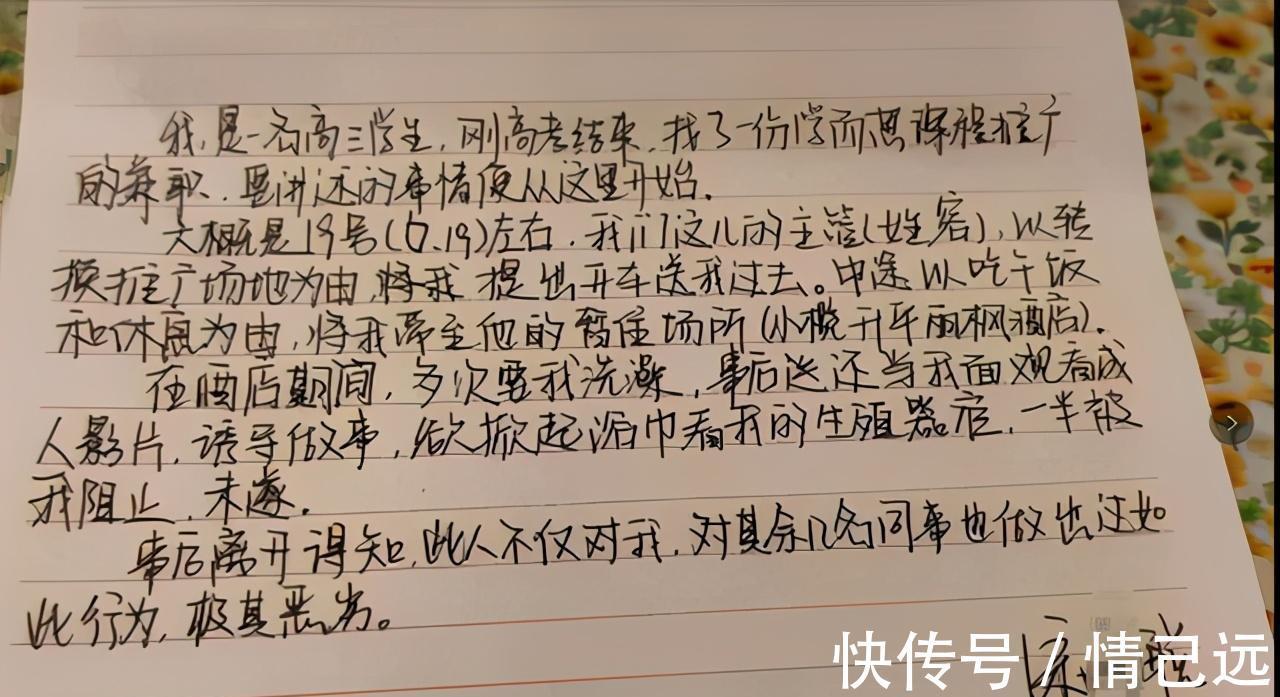 我是一名高三学生,刚高考结束,找了一份学而思课程推广
的兼职,要讲述的事情便从这里开始。
大概是19号(6.19)左右,我们这儿的主管(姓容),以转
换推广场地为由,将我提出开车送我过去。中途以吃午饭
和休息为由,将我带至他的暂住场所(小榄升平丽枫酒店)。
在酒店期间,多次要我洗澡,事后还当我面观看成
人影片,诱导做事,欲掀起浴巾看我的生殖器官,一半被
我阻止,未遂。
事后离开得知,此人不仅对我,对其余几名同事也做出过如
此行为,极其恶劣。
快传号/情已远